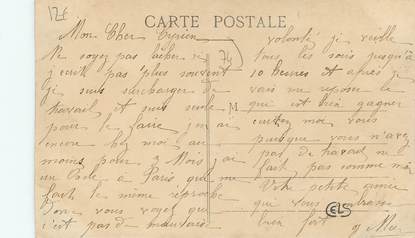 12€
CARTE POSTALE
Mon Cher Cyrien
74
Ne soyez pas fâcher si
j'ecrit pas plus souvent
je suis surcharger de
travail et suis seule
pour le faire j'en ai
encore chez moi au
moins pour 2 Mois j'ai
un Oncle à Paris qui me
fait le même reproche
Donc vous voyez que
c'est pas de mauvaise
M
volonté je veille
tous les soirs jusqu'à
10 heures et après je
vais me reposer le
qui est bien gagner
moi vous
puisque vous n'avez
pas de travail ne
fait pas comme moi
Votre petite amie
qui vous embrasse
bien fort
CELS